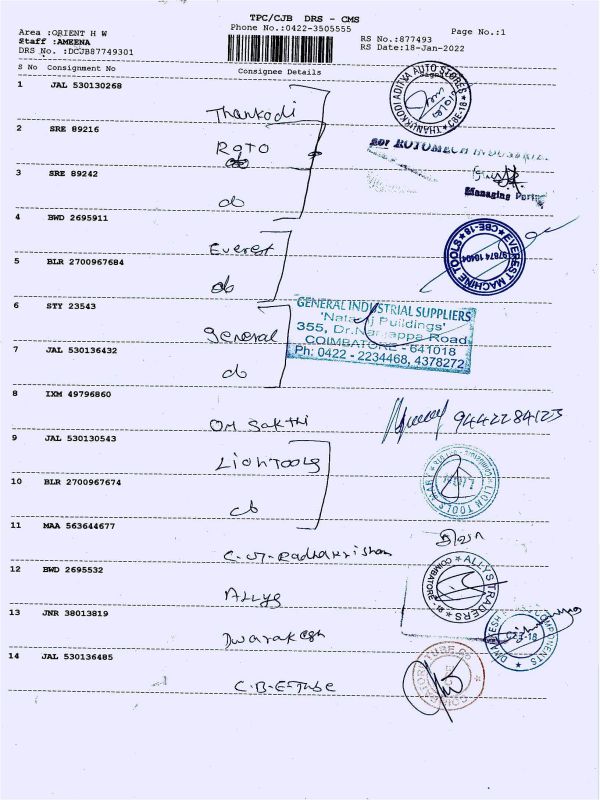 TPC/CJB DRS - CMS
Phone No.:0422-3505555
Page No.:1
Area :ORIENT H W
Staff :AMEENA
DRS No. :DCJB87749301
RS No.:877493
RS Date:18-Jan-2022
S No Consignment No Consignee Details
1 JAL 530130268
Thankodi
THANKKODI ADITYA AUTO STORES * CBE-18 *
2 SRE 89216
Roto
for ROTOMECH INDUSTRIES
3 SRE 89242
do
Managing Partn
4 BWD 2695911
Everest
EVEREST MACHINE TOOLS * CBE-18 *
9787410404
5 BLR 2700967684
do
6 STY 23543
General
GENERAL INDUSTRIAL SUPPLIERS
'Nataraj Puildings'
355, Dr.Nanjappa Road
COIMBATORE - 641018
Ph: 0422 - 2234468, 4378272
7 JAL 530136432
do
8 IXM 49796860
OM Sakthi
9442284123
9 JAL 530130543
Lion Tools
LION TOOLS MART
10 BLR 2700967674
do
11 MAA 563644677
C.W. Radhakrishan
12 BWD 2695532
Allys
ALLYS TRADERS
COIMBATORE - 18
13 JNR 38013819
Dwarakesh
DWARAKESH COMPONENTS
CBE-18
14 JAL 530136485
C.B.E-Tube
TUBE CO